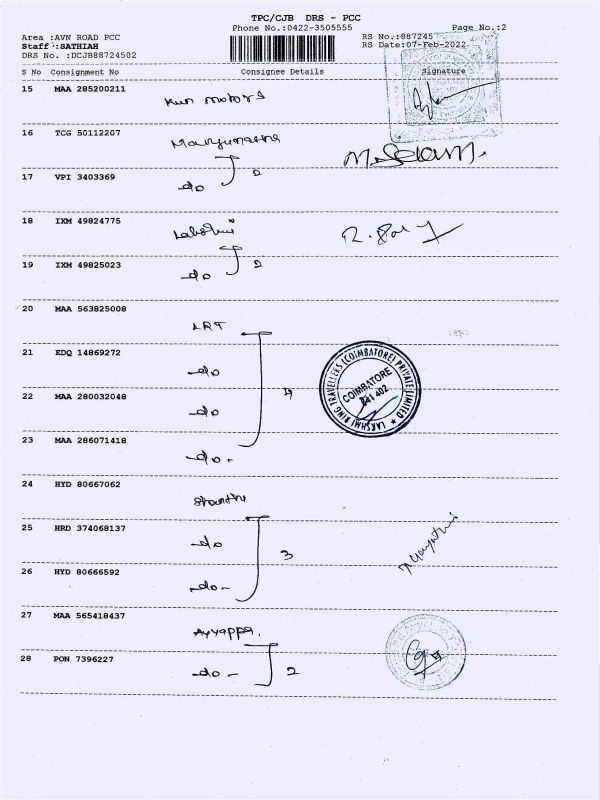 TPC/CJB DRS - PCC
Phone No.:0422-3505555 Page No.:2
Area :AVN ROAD PCC RS No.:887245
Staff :SATHIAH RS Date:07-Feb-2022
DRS No. :DCJB88724502
S No Consignment No Consignee Details Signature
15 MAA 285200211
Kun motors
16 TCG 50112207
17 VPI 3403369
do 2
M. Selvam.
18 IXM 49824775
19 IXM 49825023
do 2
20 MAA 563825008
LRT
21 EDQ 14869272
do
22 MAA 280032048
do 4
23 MAA 286071418
do -
LAKSHMI RING TRAVELLERS (COIMBATORE) PRIVATE LIMITED
COIMBATORE
641 402
24 HYD 80667062
25 HRD 374068137
do 3
26 HYD 80666592
do -
27 MAA 565418437
Ayyappa.
28 PON 7396227
do - 2